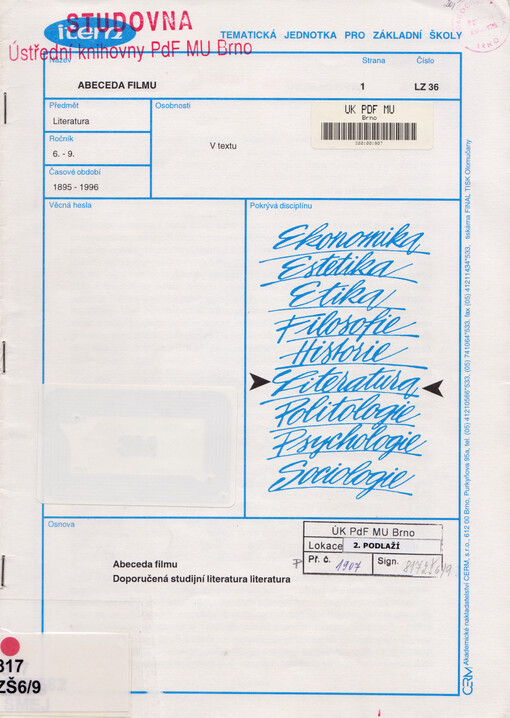 STUDOVNA
Ústřední knihovny PdF MU Brno
itern
TEMATICKÁ JEDNOTKA PRO ZÁKLADNÍ ŠKOLY
Název
Strana
Číslo
ABECEDA FILMU
1
LZ 36
Předmět
Osobnosti
Literatura
V textu
UK PDF MU
Brno
Ročník
6. - 9.
Časové období
1895 - 1996
Věcná hesla
Pokrývá disciplínu
Ekonomika
Estetika
Etika
Filosofie
Historie
Literatura
Politologie
Psychologie
Sociologie
Osnova
Abeceda filmu
Doporučená studijní literatura literatura
ÚK PdF MU Brno
Lokace 2. PODLAŽÍ
Př. č. 1907 Sign.
317
ZŠ6/9
CERM Akademické nakladatelství CERM, s.r.o., 612 00 Brno, Purkyňova 95a, tel. (05) 41210566*533, (05) 741064*533, fax (05) 41211434*533, tiskárna FINAL TISK Olomučany